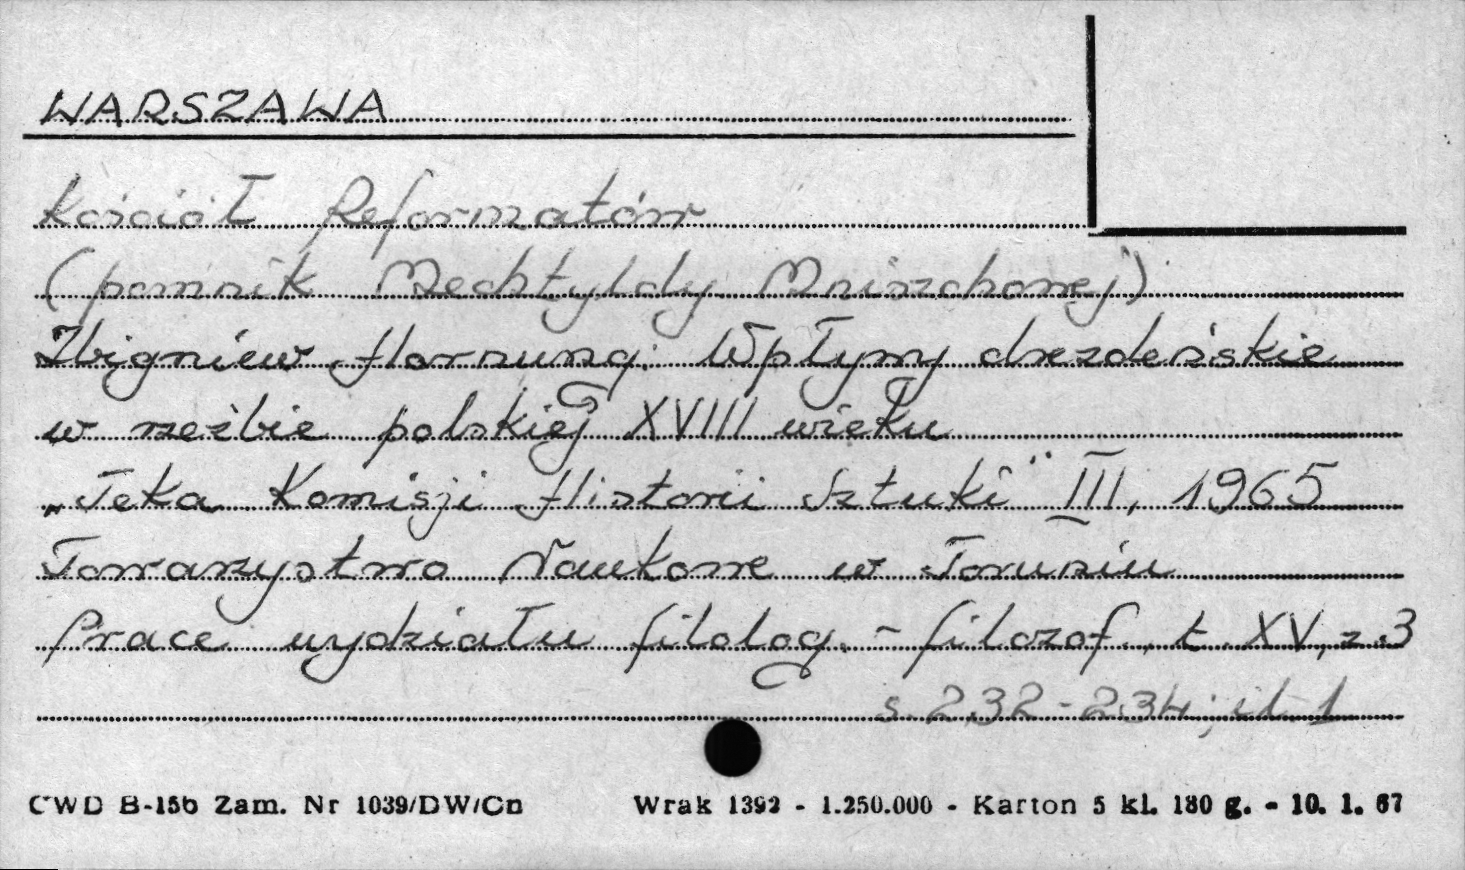 WARSZAWA
Kościół Reformatów
(pomnik Mechtyldy Mniszchowej)
Zbigniew Hornung: Wpływy drezdeńskie
w rzeźbie polskiej XVIII wieku
„Teka Komisji Historii Sztuki" III, 1965
Towarzystwo Naukowe w Toruniu
Prace wydziału filolog.-filozof., t. XV, z. 3
s. 232-234; il. 1
CWD B-15b Zam. Nr 1039/DW/Cn Wrak 1392 - 1.250.000 - Karton 5 kl. 180 g. - 10. 1. 67